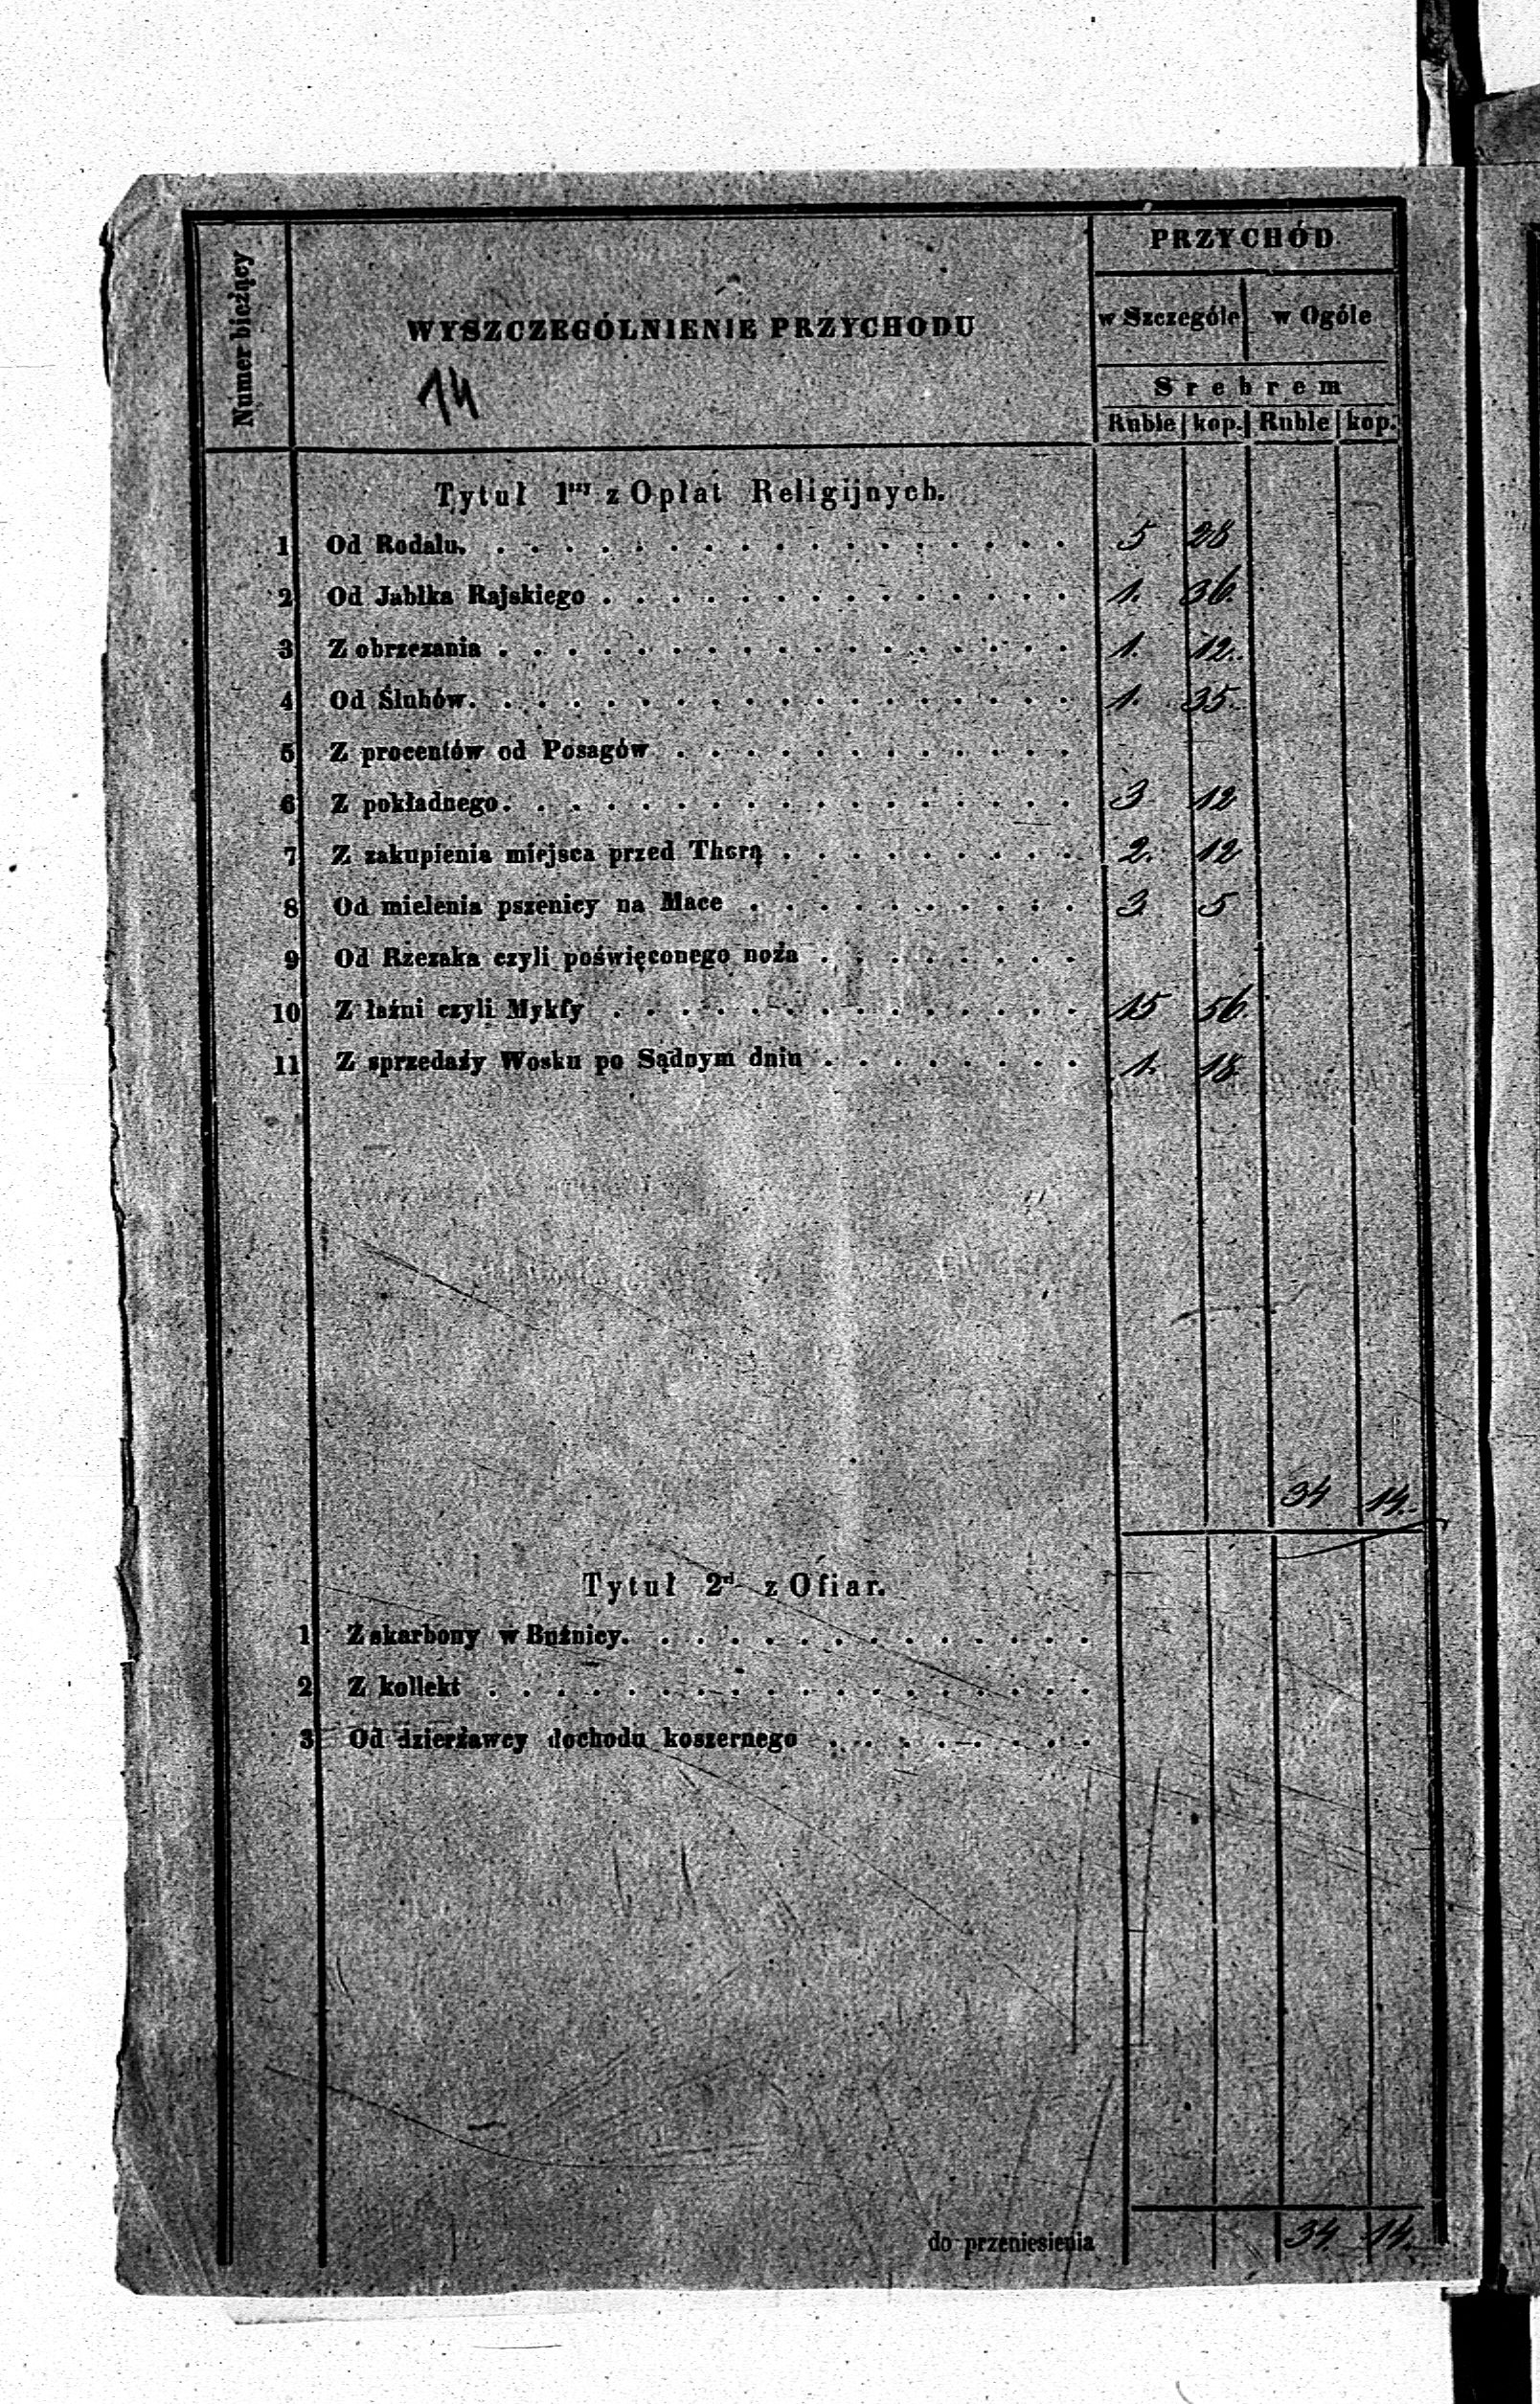 Numer bieżący
WYSZCZEGÓLNIENIE PRZYCHODU
14
PRZYCHÓD
w Szczególe w Ogóle
Srebrem
Ruble kop. Ruble kop.
Tytuł 1szy z Opłat Religijnych.
1 Od Rodału. 5 28
2 Od Jabłka Rajskiego 1. 36.
3 Z obrzezania 1. 12.
4 Od Ślubów. 1. 35.
5 Z procentów od Posagów
6 Z pokładnego. 3 12
7 Z zakupienia miejsca przed Thorą 2. 12
8 Od mielenia pszenicy na Mace 3 5
9 Od Rzezaka czyli poświęconego noża
10 Z łaźni czyli Mykfy 15 56.
11 Z sprzedaży Wosku po Sądnym dniu 1. 18
34 14.
Tytuł 2gi z Ofiar.
1 Z skarbony w Bużnicy.
2 Z kollekt
3 Od dzierżawcy dochodu koszernego
do przeniesienia 34. 14.